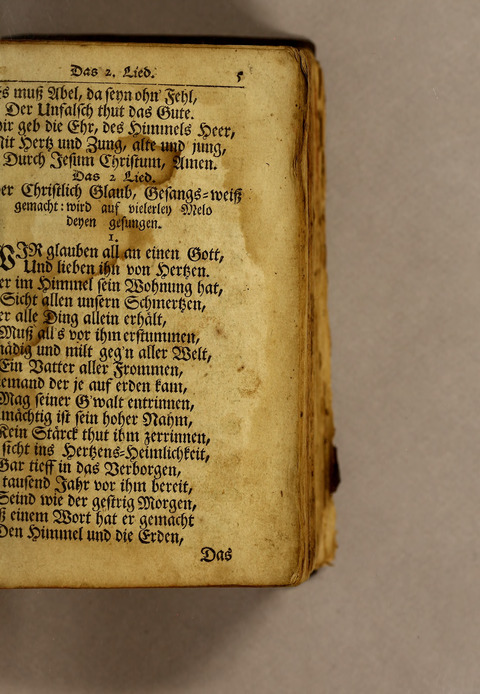 Das 2. Lied. 5
s muß Abel, da seyn ohn' Fehl,
Der Unfalsch thut das Gute.
ir geb die Ehr, des Himmels Heer,
Mit Hertz und Zung, alte und jung,
Durch Jesum Christum, Amen.
Das 2 Lied.
er Christlich Glaub, Gesangs-weiß
gemacht: wird auf vielerley Melo
deyen gesungen.
1.
WIR glauben all an einen Gott,
Und lieben ihn von Hertzen.
er im Himmel sein Wohnung hat,
Sicht allen unsern Schmertzen,
er alle Ding allein erhält,
Muß all's vor ihm erstummen,
nädig und milt geg'n aller Welt,
Ein Vatter aller Frommen,
iemand der je auf erden kam,
Mag seiner G'walt entrinnen,
mächtig ist sein hoher Nahm,
Kein Stärck thut ihm zerrinnen,
sicht ins Hertzens-Heimlichkeit,
Gar tieff in das Verborgen,
tausend Jahr vor ihm bereit,
Seind wie der gestrig Morgen,
ß einem Wort hat er gemacht
Den Himmel und die Erden,
Das